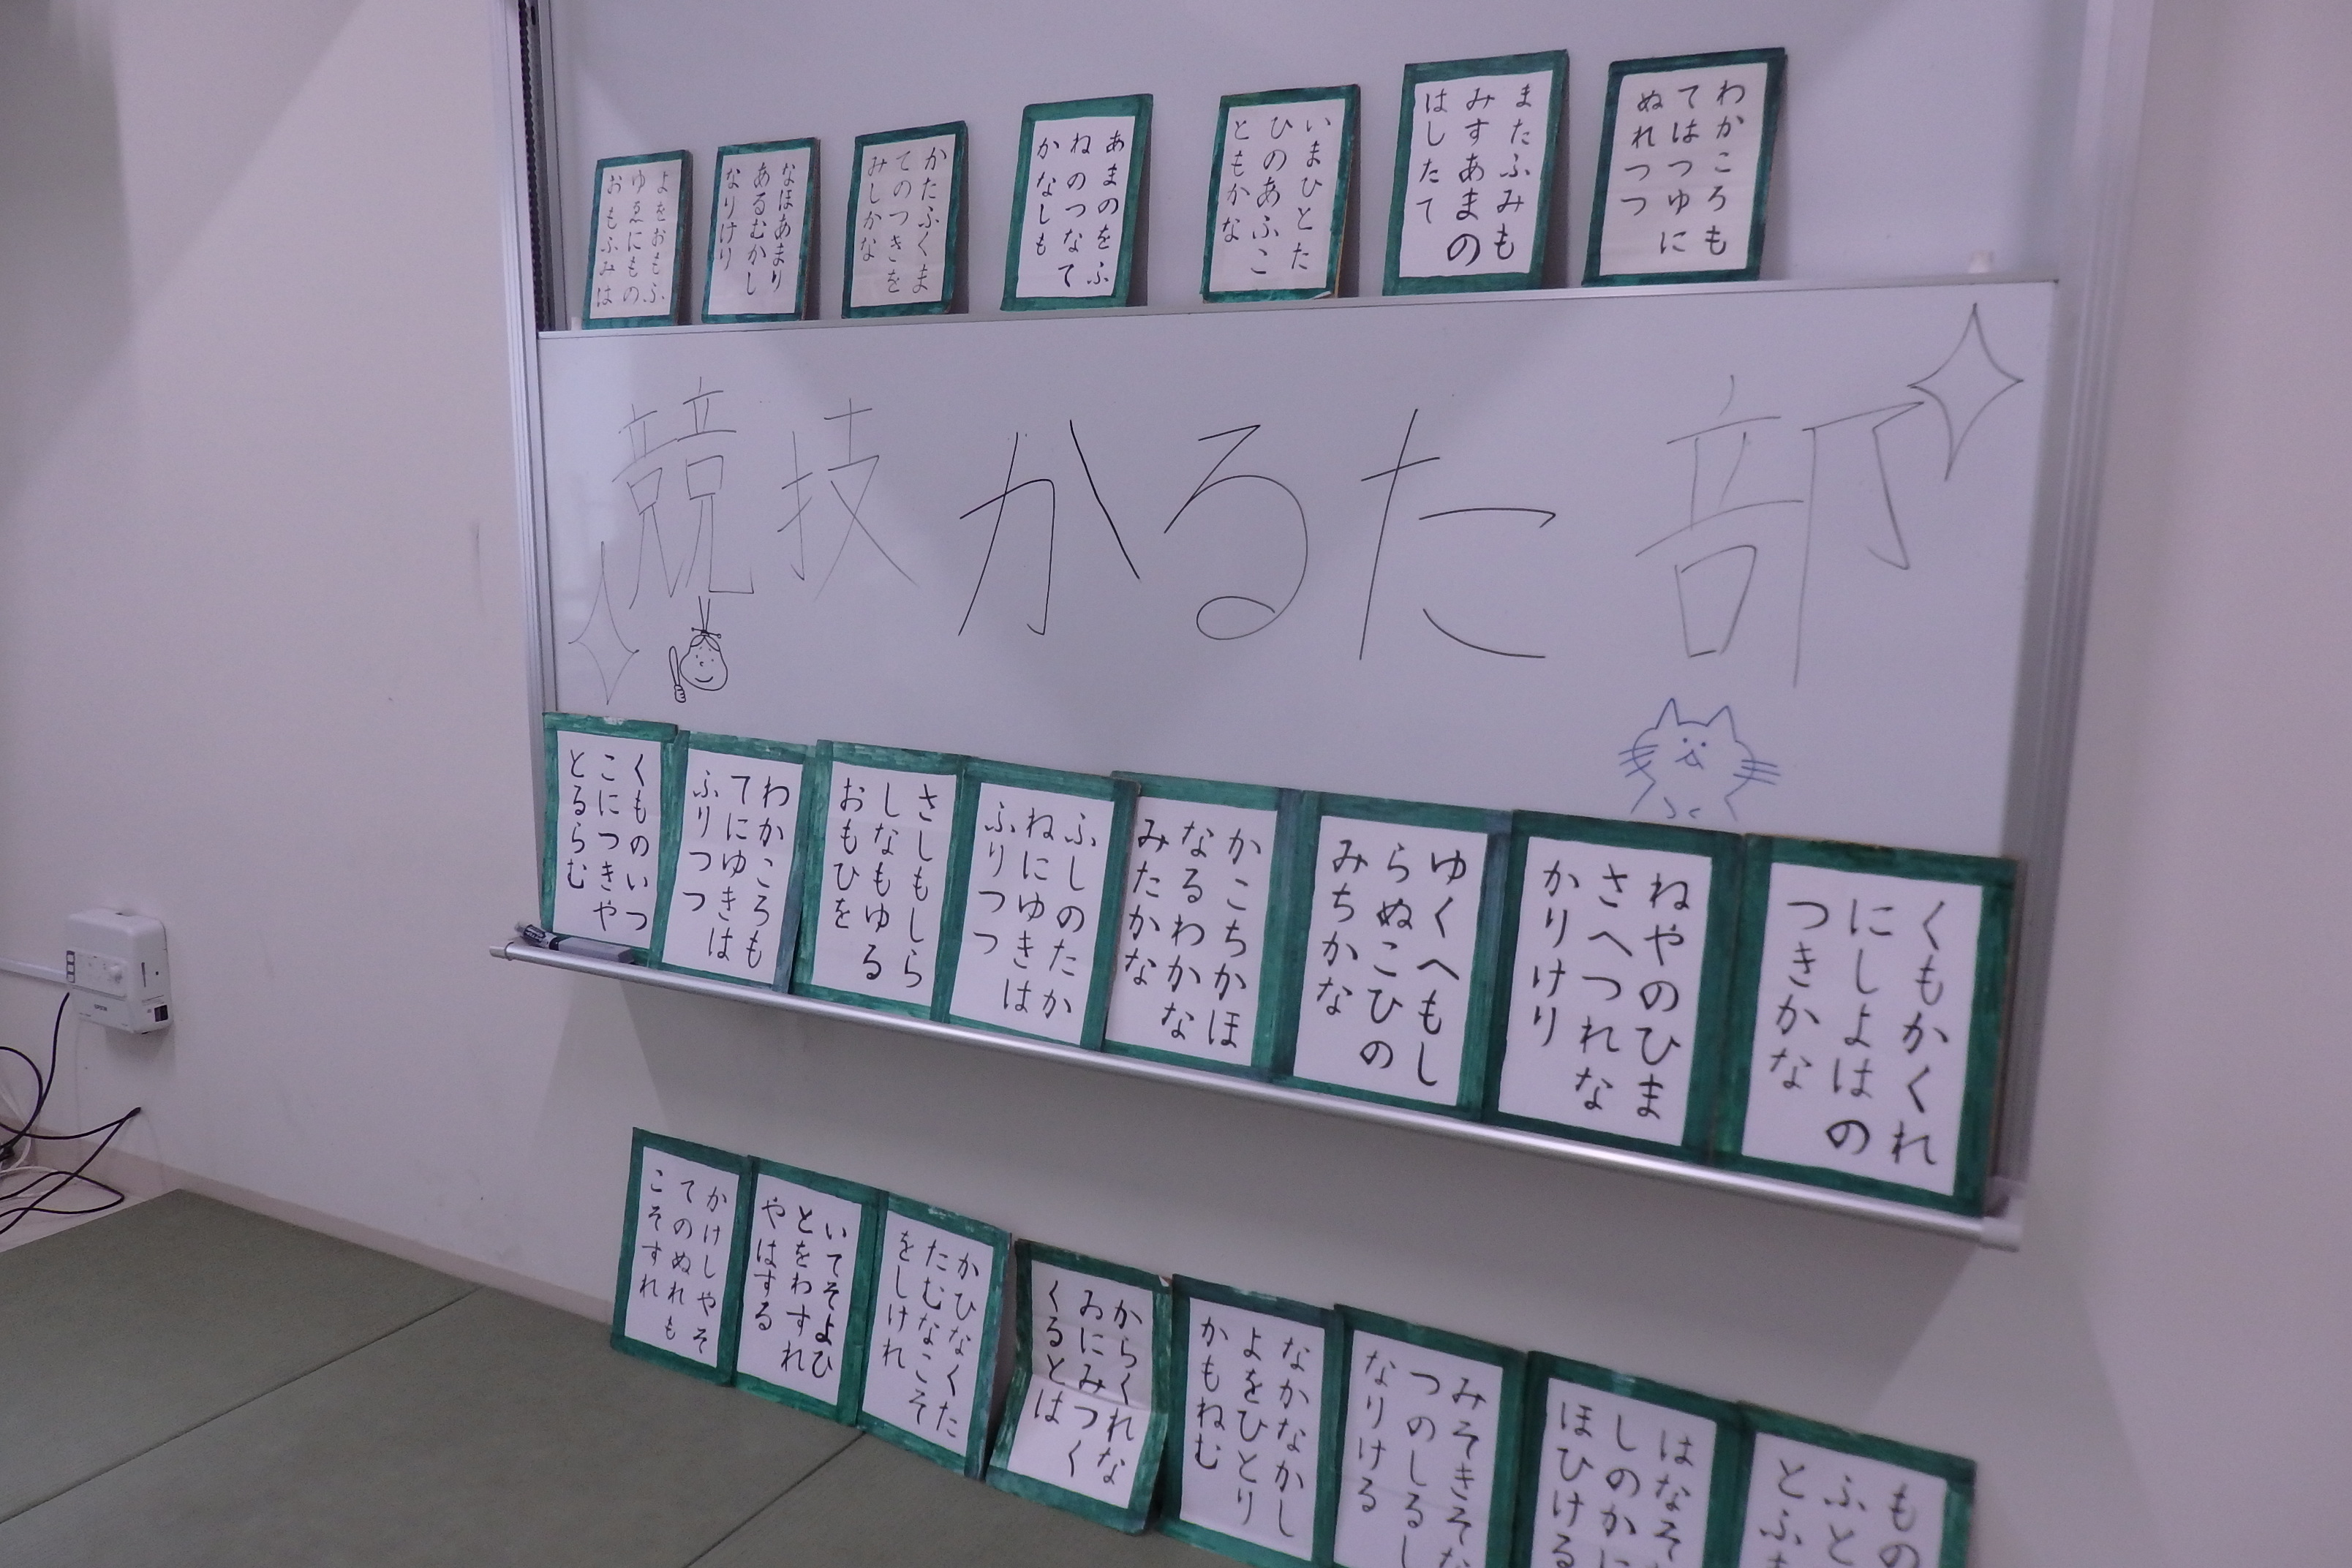 わかころも
てはつゆに
ぬれつつ
またふみも
みすあまの
はしたて
いまひとた
ひのあふこ
ともかな
あまのをふ
ねのつなて
かなしも
かたふくま
てのつきを
みしかな
なほあまり
あるむかし
なりけり
よをおもふ
ゆゑにもの
おもふみは
競技かるた部
くもかくれ
にしよはの
つきかな
ねやのひま
さへつれな
かりけり
ゆくへもし
らぬこひの
みちかな
かこちかほ
なるわかな
みたかな
ふしのたか
ねにゆきは
ふりつつ
さしもしら
しなもゆる
おもひを
わかころも
てにゆきは
ふりつつ
くものいつ
こにつきや
とるらむ
もの
ふと
とふ
はなそ
しのかに
ほひける
みそきそな
つのしるし
なりける
なかなかし
よをひとり
かもねむ
からくれな
ゐにみつく
くるとは
かひなくた
たむなこそ
をしけれ
いてそよひ
とをわすれ
やはする
かけしやそ
てのぬれも
こそすれ